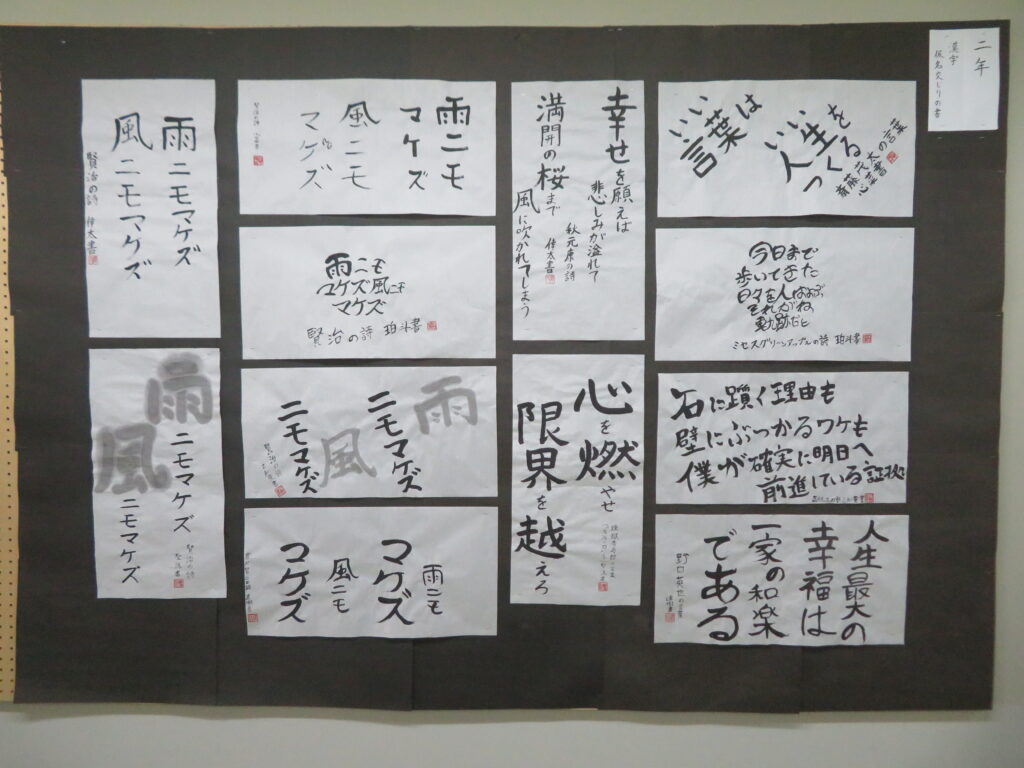 二年
漢字
仮名交じりの書
いい
言葉は
いい
人生を
つくる
斎藤茂太の言葉
今日まで
歩いてきた
日々を人は
それがね、
軌跡だと
ミセスグリーンアップルの詩 珀斗書
石に躓く理由も
壁にぶつかるワケも
僕が確実に明日へ
前進している証拠
人生最大の
幸福は
一家の和楽
である
野口英世の言葉
幸せを願えば
悲しみが溢れて
満開の桜まで
風に吹かれてしまう
秋元康の詩
佳太書
心を燃やせ
限界を越えろ
雨ニモ
マケズ
風ニモ
マケズ
雨ニモ
マケズ風ニモ
マケズ
賢治の詩 珀斗書
雨ニモマケズ
風ニモマケズ
賢治の詩
雨ニモ
マケズ
風ニモ
マケズ
雨ニモマケズ
風ニモマケズ
賢治の詩 佳太書
雨ニモマケズ
風ニモマケズ
賢治の詩